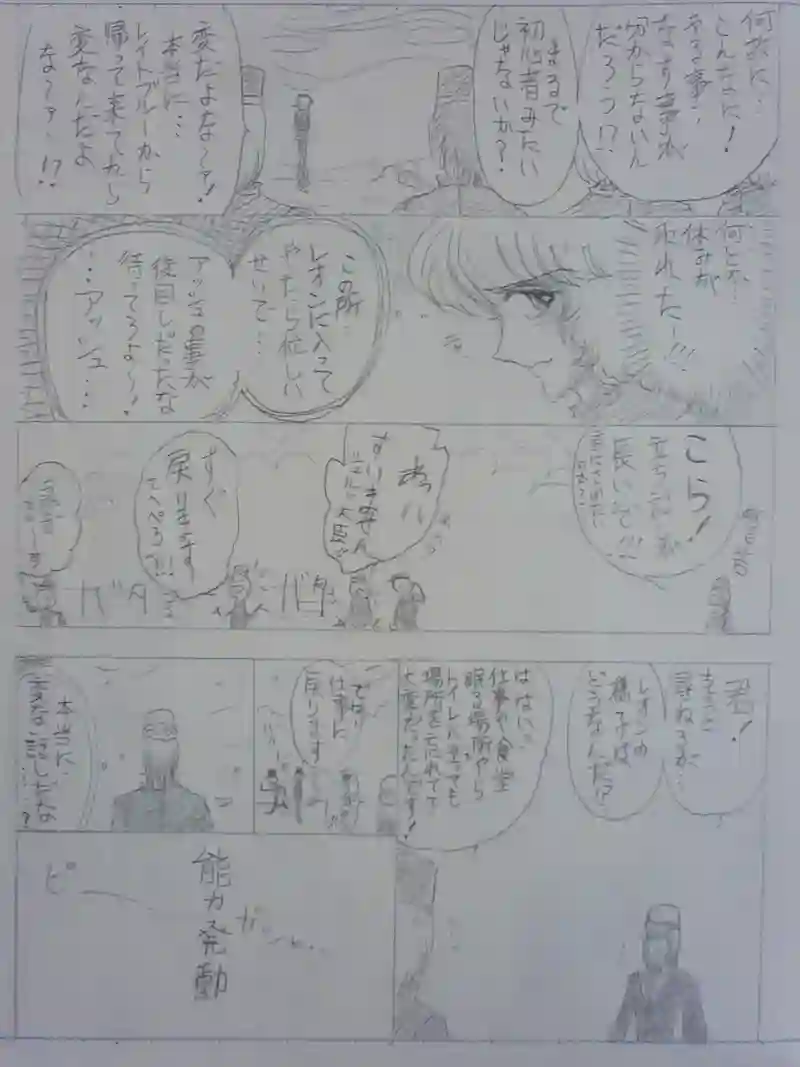 何故に…
こんなに!
やる事…
なす事が
分からないん
だろう!?
まるで
初心者みたい
じゃないか?
変だよな〜ァ!
本当に…
レイトブルーから
帰って来てから
変なんだよ
な〜ァ…!?
何とか…
休みが
取れたー!!!
この所…
レオンに入って
やたら忙しい
せいで…
アッシュの事が
後回しだったな
待ってろよ〜!
…アッシュ…
こら!
立ち話が
長いぞ!!!
あっ!!
すいません
すぐ
戻ります
バタ
バタ
君!
ちょっと
尋ねるが…
レオンの
様子は
どうなんだ!?
ははいっ
仕事や食堂
眠る場所やら
トイレに至っても
場所を忘れてて
大変だったんです!
では!
仕事に
戻ります
本当に…
変な話しだな
…?
能力発動
ピー